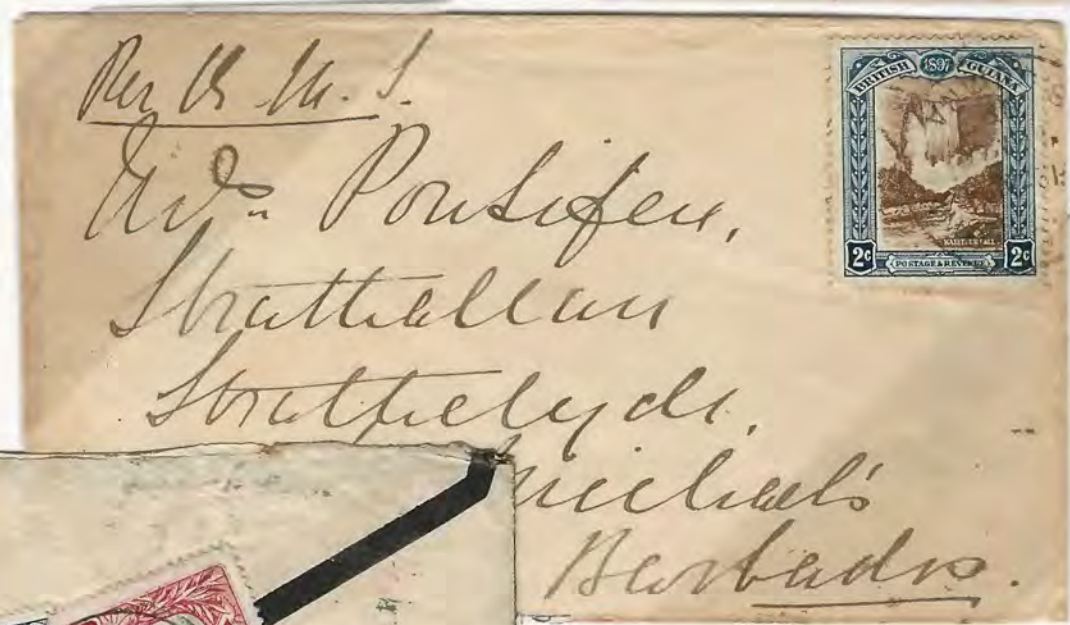 Per R. M. S.
Mrs. Pontifex,
Strathallan
Strathclyde.
Michael's
Barbados.
BRITISH 1897 GUIANA
KAIETEUR FALL
2c POSTAGE & REVENUE 2c